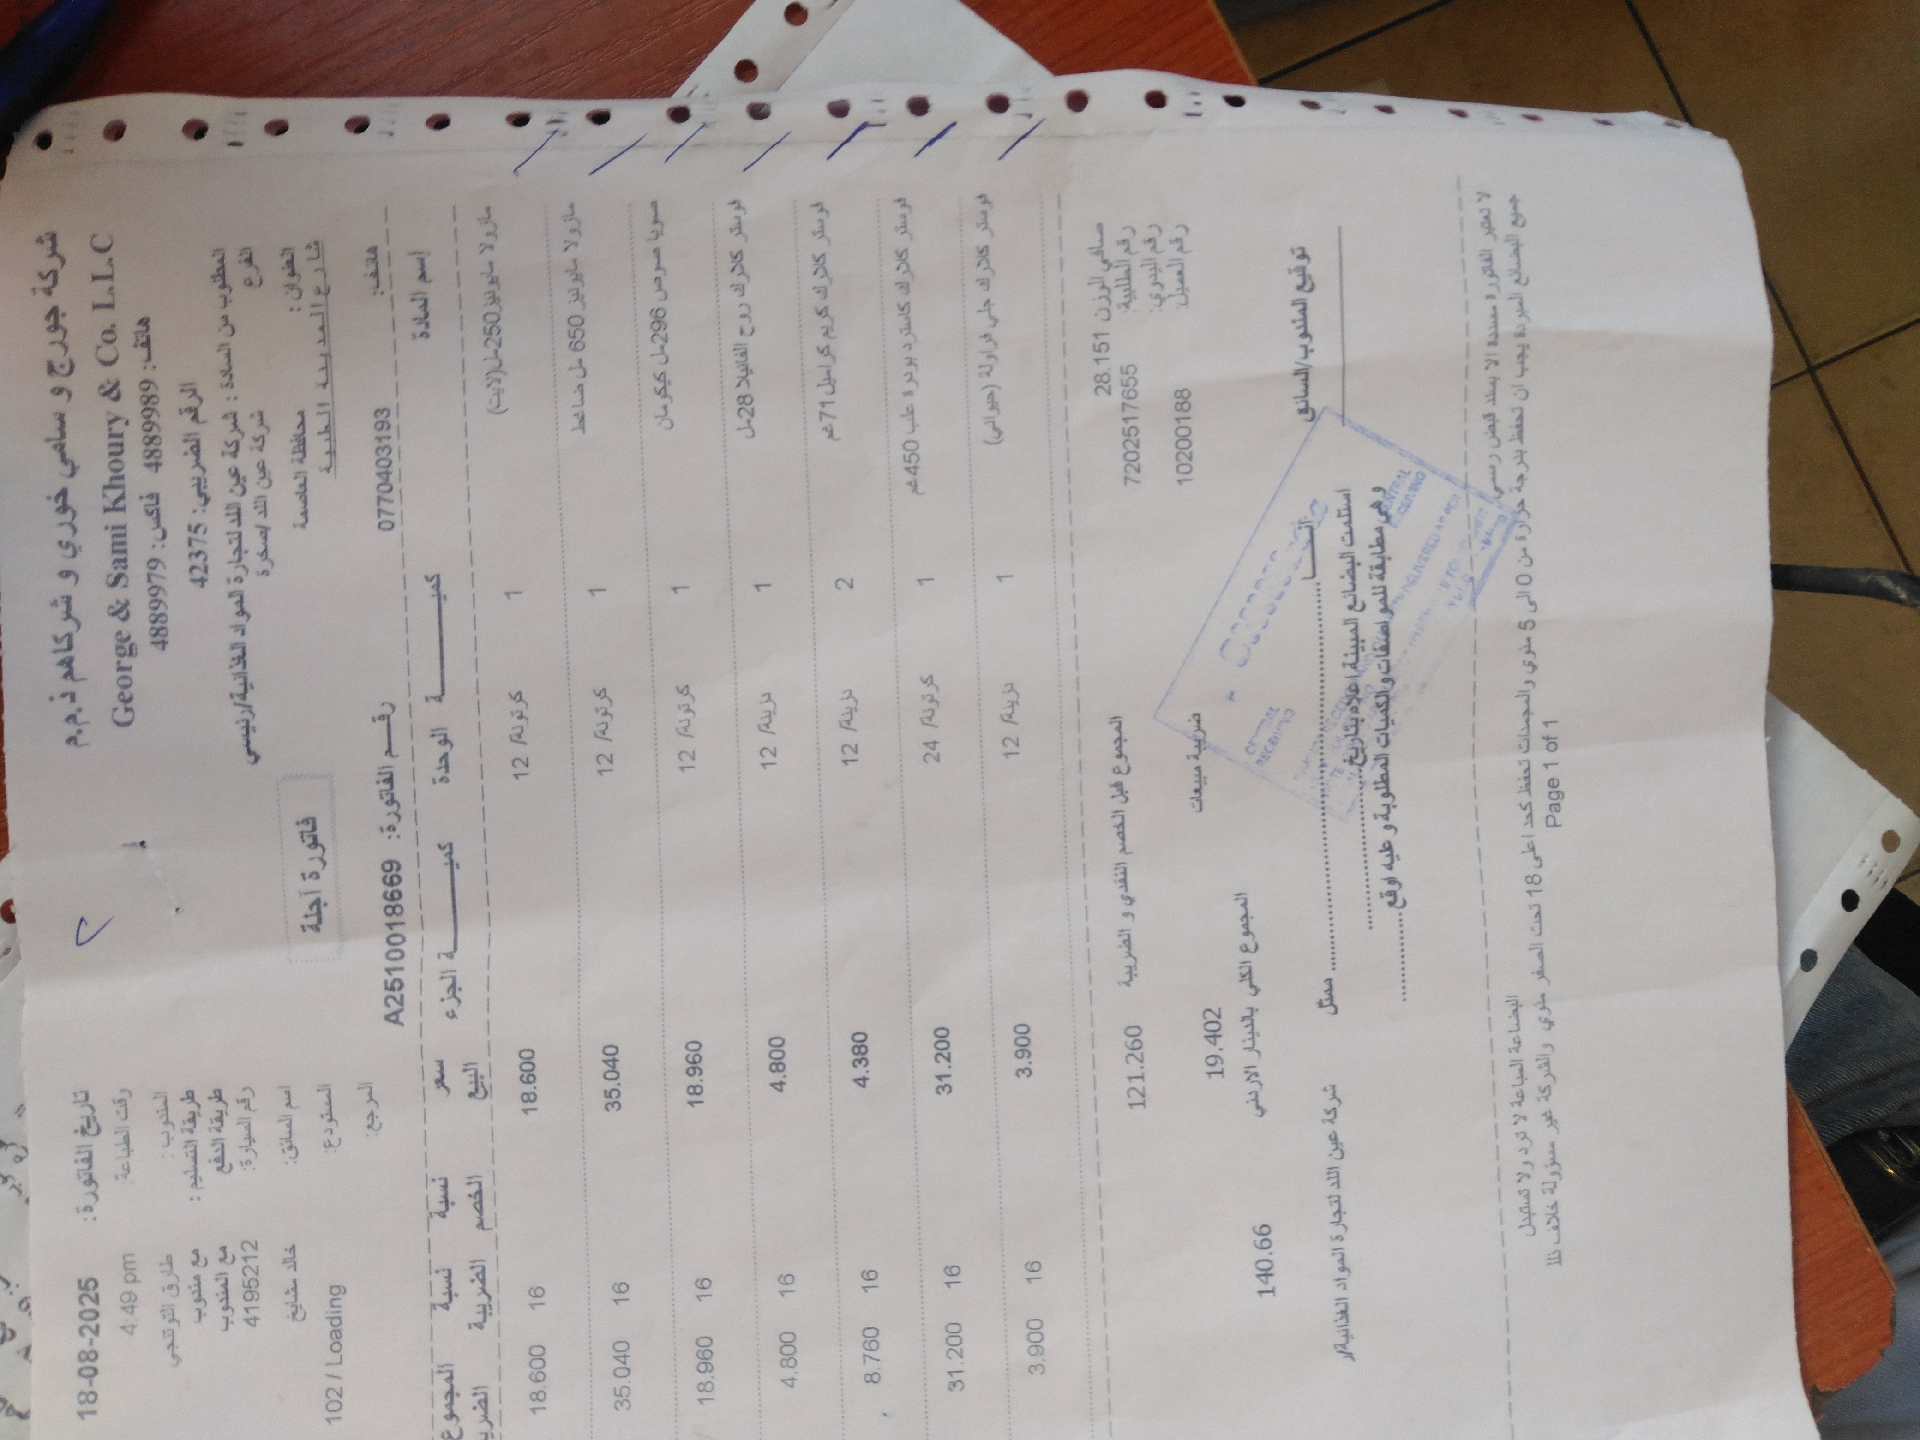 شركة جورج و سامي خوري و شركاهم ذ.م.م
George & Sami Khoury & Co. L.L.C
هاتف: 4889989 فاكس: 4889979
الرقم الضريبي: 42375
تاريخ الفاتورة: 18-08-2025
وقت الطباعة: 4:49 pm
المندوب: طارق التوتنجي
طريقة التسليم: مع مندوب
طريقة الدفع مع المندوب
رقم السيارة: 4195212
اسم السائق: خالد مشايخ
المستودع: 102 / Loading
المرجع:
المطلوب من السادة : شركة عين اللد لتجارة المواد الغذائية/رئيسي
الفرع شركة عين اللد /صخرة
العنوان : محافظة العاصمة
شارع المدينة الطبية
فاتورة آجلة
هاتف: 0770403193
رقم الفاتورة: A2510018669
إسم المادة كميـة الوحدة كميـة الجزء سعر البيع نسبة الخصم نسبة الضريبة المجموع
مازولا مايونيز 250مل(لايت) 1 كرتونة/ 12 18.600 16 18.600
مازولا مايونيز 650 مل ضاغط 1 كرتونة/ 12 35.040 16 35.040
صويا صوص 296مل كيكرمان 1 كرتونة/ 12 18.960 16 18.960
فوستر كلارك روح الفانيلا 28مل 1 دزينة/ 12 4.800 16 4.800
فوستر كلارك كريم كراميل 71غم 2 دزينة/ 12 4.380 16 8.760
فوستر كلارك كاسترد بودرة علب 450غم 1 كرتونة/ 24 31.200 16 31.200
فوستر كلارك جلي فراولة (حيواني) 1 دزينة/ 12 3.900 16 3.900
صافي الوزن 28.151
رقم الطلبية: 7202517655
رقم اليدوي:
رقم العميل: 10200188
المجموع قبل الخصم النقدي و الضريبة 121.260
ضريبة مبيعات 19.402
المجموع الكلي بالدينار الاردني 140.66
توقيع المندوب/السائق
ممثل شركة عين اللد لتجارة المواد الغذائية/ر
استلمت البضائع المبينة اعلاه بتاريخ
وهي مطابقة للمواصفات والكميات المطلوبة و عليه اوقع
لا تعتبر الفاتورة مسددة الا بسند قبض رسمي
البضاعة المباعة لا ترد ولا تستبدل
جميع البضائع المبردة يجب ان تحفظ بدرجة حرارة من 0 الى 5 مئوي والمجمدات تحفظ كحد اعلى 18 تحت الصفر مئوي والشركة غير مسؤولة خلاف ذلك
Page 1 of 1